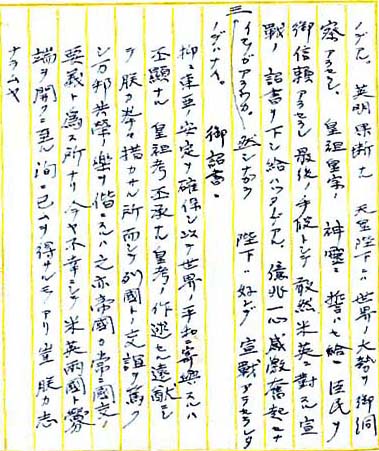 ノデル。英明果断ナ 天皇陛下ニハ世界ノ大勢ヲ御洞
察アラセラレ 皇祖皇宗ノ神霊ニ誓ハセ給ヒ臣民ヲ
御信頼アラセラレ最後ノ手段トシテ敢然米英ニ対スル宣
戦ノ詔書ヲ下シ給ハッタノデアル。億兆一心感激奮起セナ
イモノガアラウカ。然シナガラ 陛下ハ好ンデ宣戦アラセラレタ
ノデハナイ。 御詔書ニ
抑々東亜ノ安定ヲ確保シ以テ世界ノ平和ニ寄與スルハ
丕顯ナル 皇祖考丕承ナル皇考ノ作述セル遠猷ニシ
テ朕カ拳々措カサル所而シテ列國トノ交誼ヲ篤ク
シ万邦共榮ノ楽ヲ偕ニスルハ之亦帝國カ常ニ國交ノ
要義ト為ス所ナリ今ヤ不幸ニシテ米英両國ト釁
端ヲ開クニ至ル洵ニ已ムヲ得サルモノアリ豈朕カ志
ナラムヤ